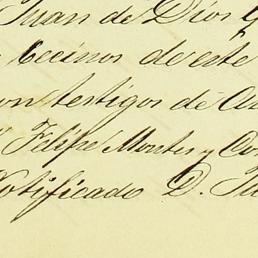 Juan de Dios G
Vecinos de este
on testigos de
Felipe Montes y Co
Notificado D. Ju